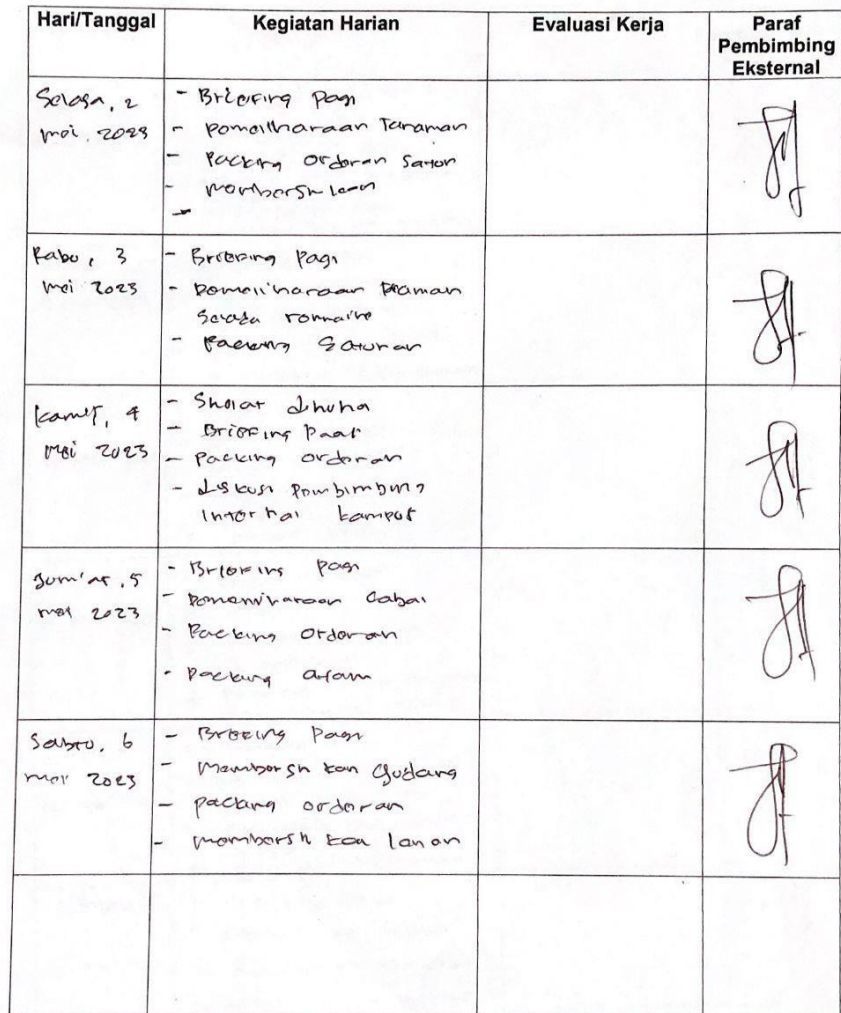 Hari/Tanggal Kegiatan Harian Evaluasi Kerja Paraf
Pembimbing
Eksternal
Selasa, 2
mei 2023
- Briefing pagi
- pemeliharaan Tanaman
- Packing orderan
- membersihkan
-
Rabu, 3
mei 2023
- Briefing pagi
- pemeliharaan tanaman
selada romaine
- Packing sayuran
Kamis, 4
mei 2023
- Sholat dhuha
- Briefing
- packing orderan
- diskusi pembimbing
internal kampus
Jum'at, 5
mei 2023
- Briefing pagi
- pemeliharaan cabai
- Packing orderan
- packing ayam
Sabtu, 6
mei 2023
- Briefing pagi
- membersihkan gudang
- packing orderan
- membersihkan lahan